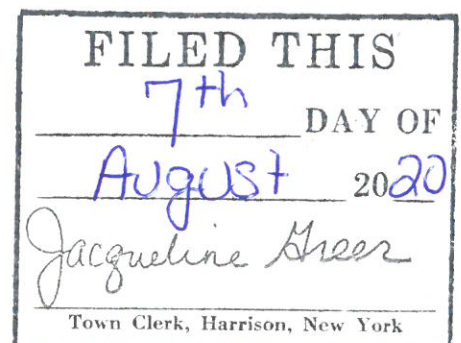 FILED THIS
7th DAY OF
August 2020
Jacqueline Greer
Town Clerk, Harrison, New York